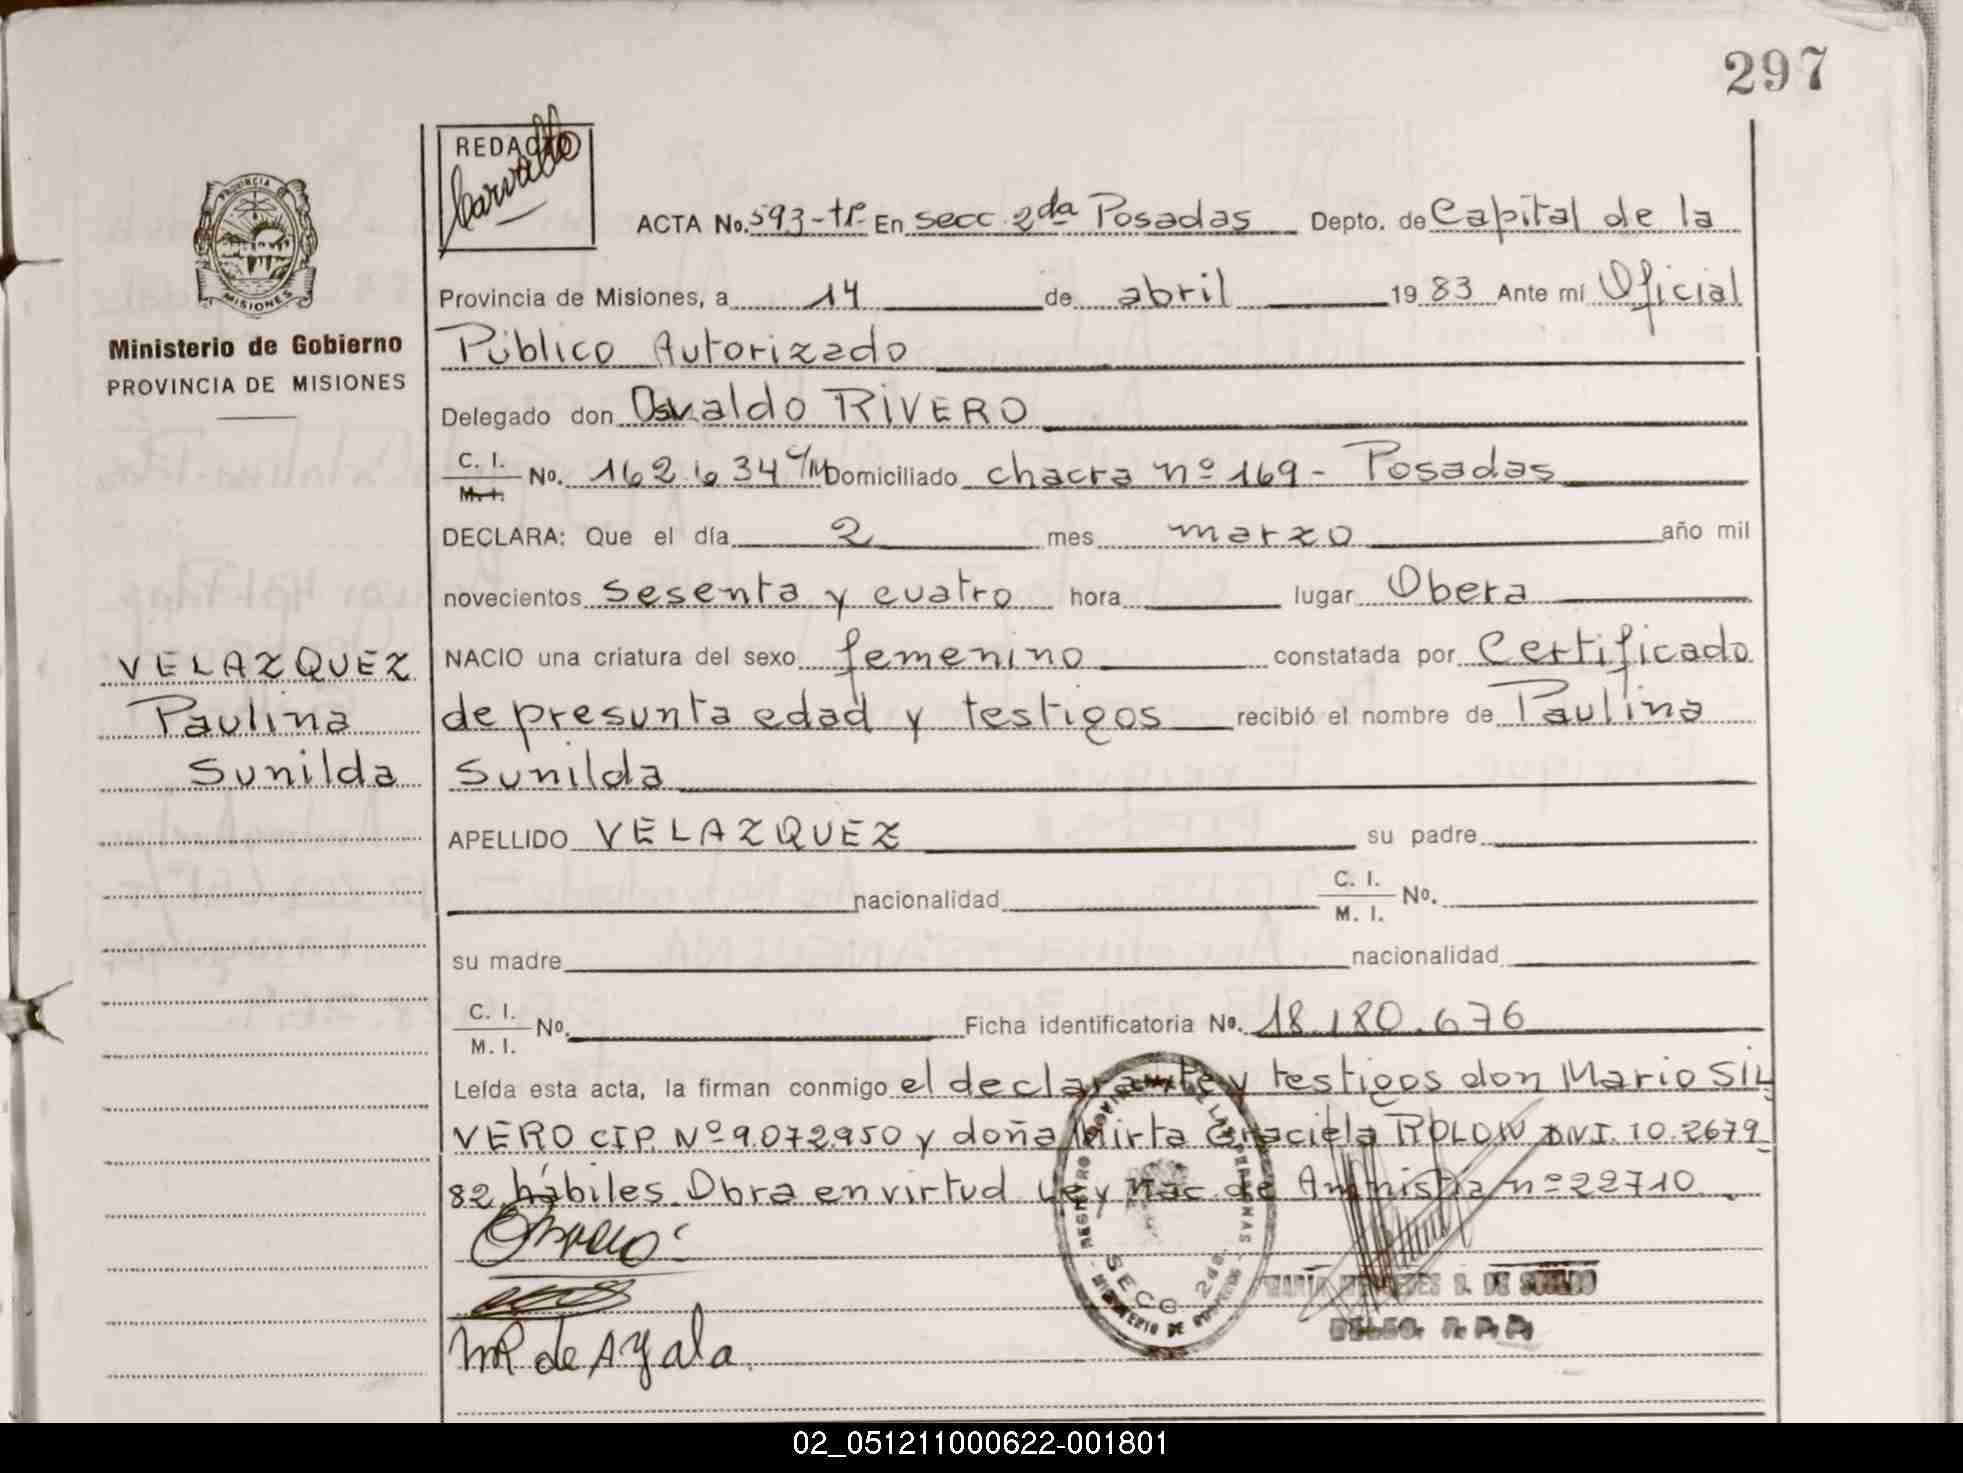 297
REDACTO
Carvallo
PROVINCIA
MISIONES
Ministerio de Gobierno
PROVINCIA DE MISIONES
ACTA No. 593-tº- En secc. 2da Posadas Depto. de Capital de la
Provincia de Misiones, a 14 de abril 1983 Ante mí Oficial
Público Autorizado
Delegado don Osvaldo RIVERO
C. I.
M. I.
No. 162.634 Domiciliado chacra nº 169- Posadas
DECLARA: Que el día 2 mes marzo año mil
novecientos sesenta y cuatro hora lugar Obera
VELAZQUEZ
Paulina
Sunilda
NACIO una criatura del sexo femenino constatada por Certificado
de presunta edad y testigos recibió el nombre de Paulina
Sunilda
APELLIDO VELAZQUEZ su padre
nacionalidad C. I.
M. I. No.
su madre nacionalidad
C. I.
M. I. No. Ficha identificatoria No. 18.180.676
Leída esta acta, la firman conmigo el declarante y testigos don Mario SIL
VERO CIP. Nº 9.072.950 y doña Mirta Graciela ROLON DNI. 10.2679
82 hábiles. Obra en virtud Ley Nac. de Amnistia nº 22710
SECC 2da.
MR de Ayala
02_051211000622-001801